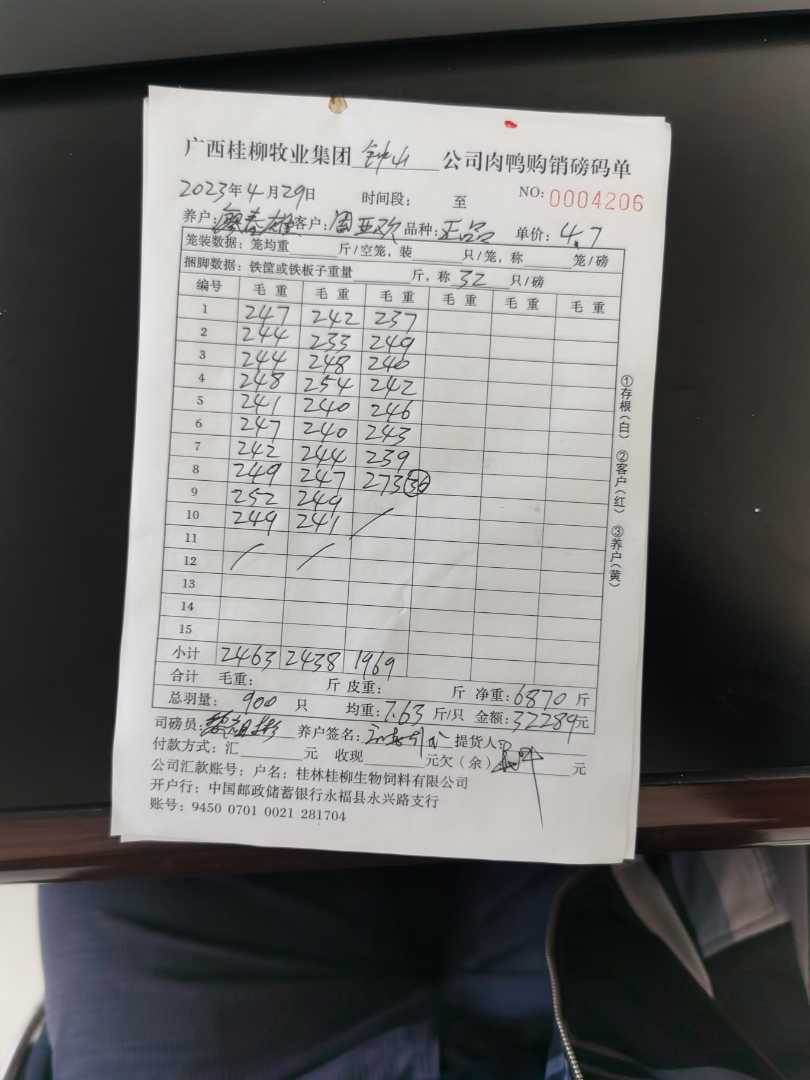 广西桂柳牧业集团 钟山 公司肉鸭购销磅码单
2023年4月29日 时间段: 至 NO: 0004206
养户: 廖春雄 客户: 周亚欢 品种: 正品 单价: 4.7
笼装数据: 笼均重 斤/空笼, 装 只/笼, 称 笼/磅
捆脚数据: 铁筐或铁板子重量 斤, 称 32 只/磅
编号 毛重 毛重 毛重 毛重 毛重 毛重
1 247 242 237
2 244 233 249
3 244 248 240
4 248 254 242
5 241 240 246
6 247 240 243
7 242 244 239
8 249 247 273 36
9 252 249
10 249 241 /
11
12 / /
13
14
15
小计 2463 2438 1969
合计 毛重: 斤 皮重: 斤 净重: 6870 斤
总羽量: 900 只 均重: 7.63 斤/只 金额: 32289元
司磅员: 养户签名: 提货人:
付款方式: 汇 元 收现 元欠(余) 元
公司汇款账号: 户名: 桂林桂柳生物饲料有限公司
开户行: 中国邮政储蓄银行永福县永兴路支行
账号: 9450 0701 0021 281704
①存根(白) ②客户(红) ③养户(黄)